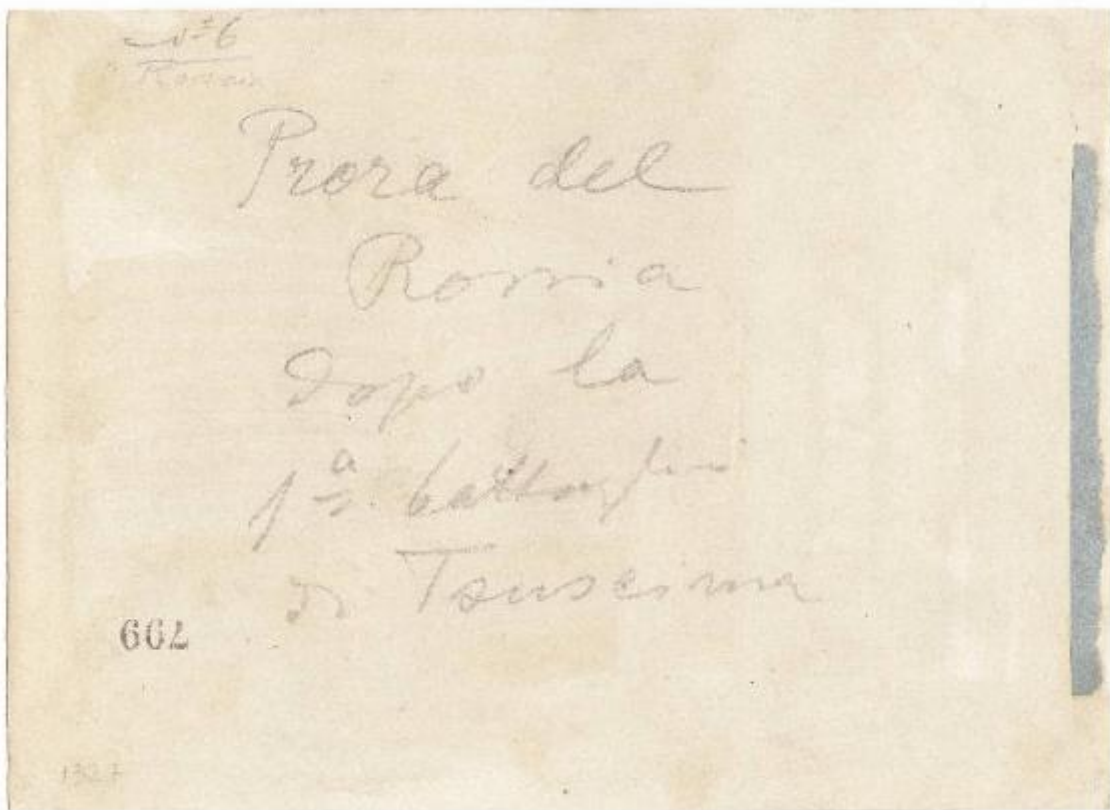 N° 6
Rossia
Prora del
Rossia
dopo la
1ª battaglia
di Tsuscima
799
1327